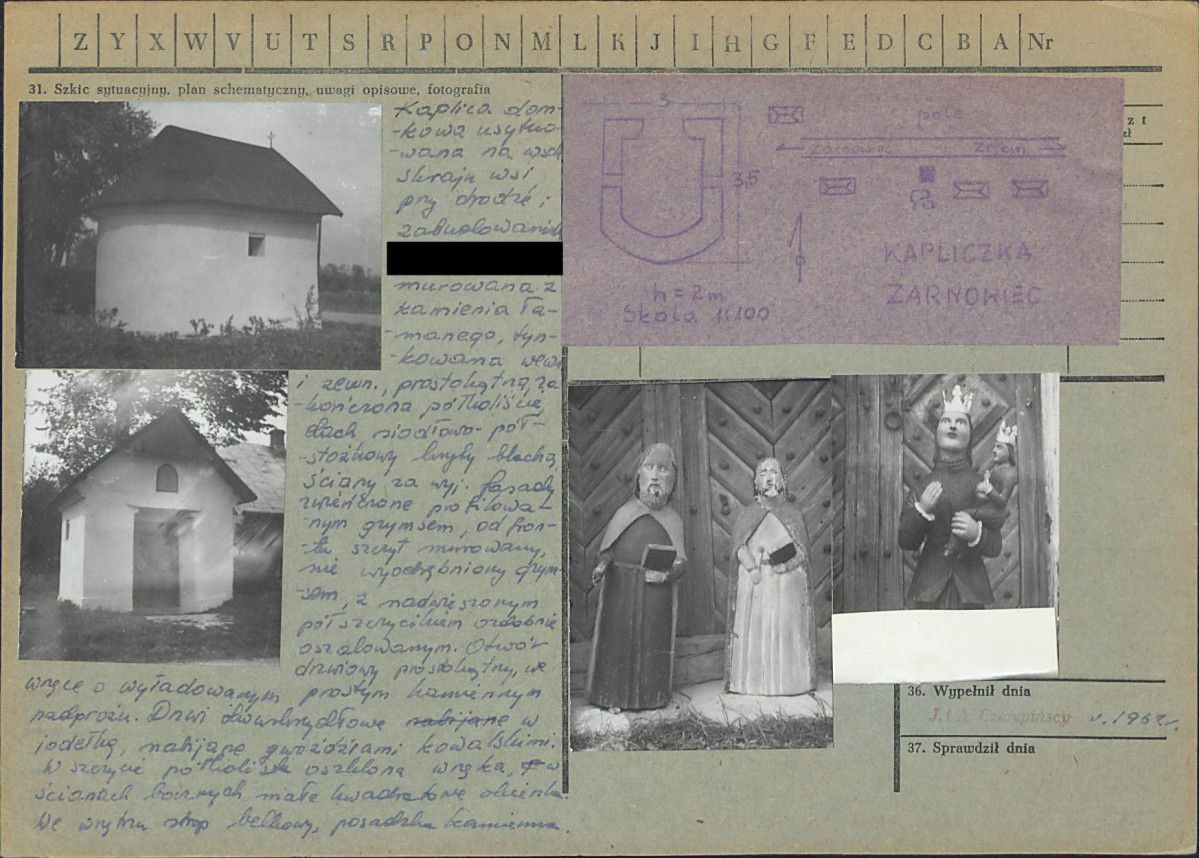 Z Y X W V U T S R P O N M L K J I H G F E D C B A Nr
31. Szkic sytuacyjny, plan schematyczny, uwagi opisowe, fotografia
Kaplica dom-
-kowa usytuo-
-wana na wsch
skraju wsi
przy drodze i
zabudowaniu
murowana z
kamienia ła-
-manego, tyn-
-kowana wewn
i zewn., prostokątna, za
-kończona półkoliście,
dach siodłowo-pół-
-stożkowy kryty blachą,
Ściany za wyj. fasady
zwieńczone profilowa-
-nym gzymsem, od fron-
-tu szczyt murowany,
nie wyodrębniony gzym-
-sem, z nadwieszonym
półszczycikiem ozdobnie
oszalowanym. Otwór
drzwiowy prostokątny, we
wnęce o wyładowanym prostym kamiennym
nadprożu. Drzwi dwuskrzydłowe nabijane w
jodełkę, nabijane gwoździami kowalskimi.
W szczycie półkolista oszklona wnęka, w
ścianach bocznych małe kwadratowe okienka.
We wnętrzu strop belkowy, posadzka kamienna.
3
3,5
h = 2m
Skala 1:100
pole
Żarnowiec
KAPLICZKA
ŻARNOWIEC
z t
zł
36. Wypełnił dnia
J. i A. Czerepińscy v. 1962 r.
37. Sprawdził dnia